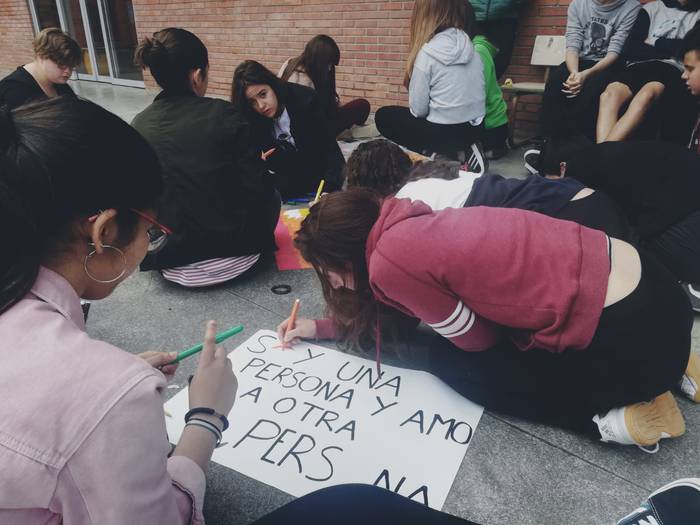 S Y UNA
PERSONA Y AMO
A OTRA
PERS NA